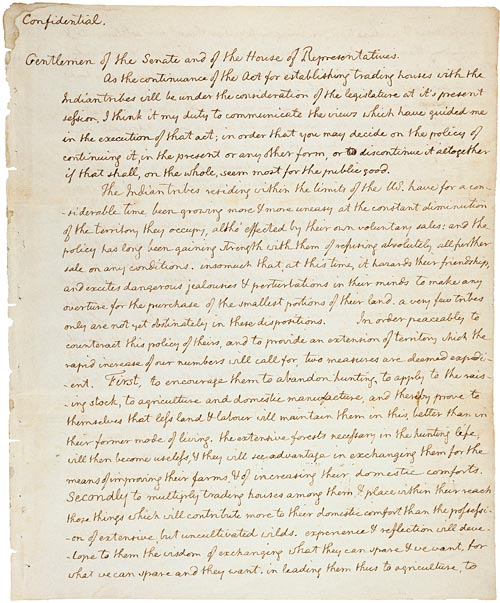 Confidential.
Gentlemen of the Senate and of the House of Representatives.
As the continuance of the Act for establishing trading houses with the
Indian tribes will be under the consideration of the legislature at it's present
session, I think it my duty to communicate the views which have guided me
in the execution of that act; in order that you may decide on the policy of
continuing it, in the present or any other form, or to discontinue it altogether
if that shall, on the whole, seem most for the public good.
The Indian tribes residing within the limits of the U.S. have for a con-
-siderable time been growing more & more uneasy at the constant diminution
of the territory they occupy, altho' effected by their own voluntary sales: and the
policy has long been gaining strength with them of refusing absolutely all further
sale on any conditions. insomuch that, at this time, it hazards their friendship,
and excites dangerous jealousies & perturbations in their minds to make any
overture for the purchase of the smallest potions of their land. a very few tribes
only are not yet obstinately in these dispositions. In order peaceably to
counteract this policy of theirs, and to provide an extension of territory which the
rapid increase of our numbers will call for, two measures are deemed expedi-
-ent. First, to encourage them to abandon hunting, to apply to the rais-
-ing stock, to agriculture and domestic manufacture, and thereby prove to
themselves that less land & labour will maintain them in this, better than in
their former mode of living. the extensive forests necessary in the hunting life,
will then become useless, & they will see advantage in exchanging them for the
means of improving their farms, & of increasing their domestic comforts.
Secondly to multiply trading houses among them & place within their reach
those things which will contribute more to their domestic comfort than the possessi-
-on of extensive, but uncultivated wilds. experience & reflection will deve-
-lope to them the wisdom of exchanging what they can spare & we want, for
what we can spare and they want. in leading them thus to agriculture, to